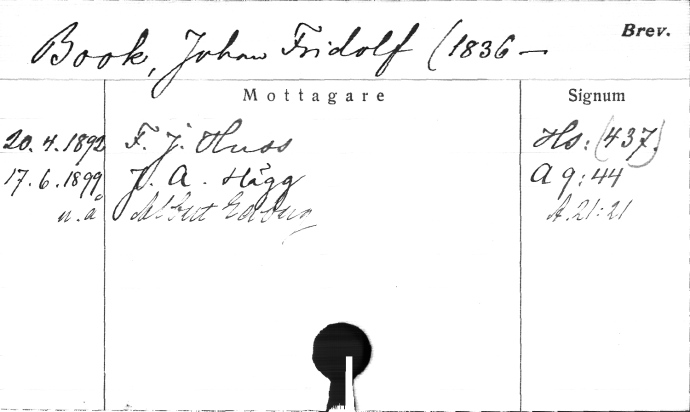 Brev.
Book, Johan Fridolf (1836 –
Mottagare Signum
20.4.1892 F. J. Huss Hs: (437)
17.6.1899 J. A. Hägg A 9:44
u.å Albert A.21:21